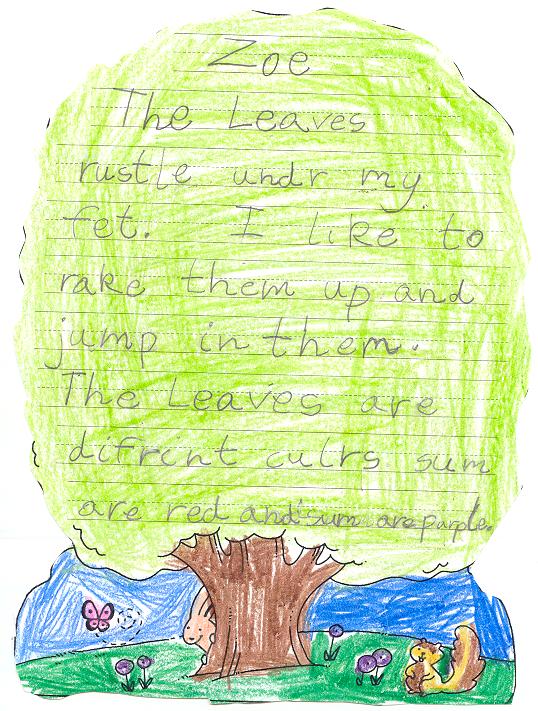 Zoe
The Leaves
rustle undr my
fet. I like to
rake them up and
jump in them.
The Leaves are
difrint culrs sum
are red and sum are purple.